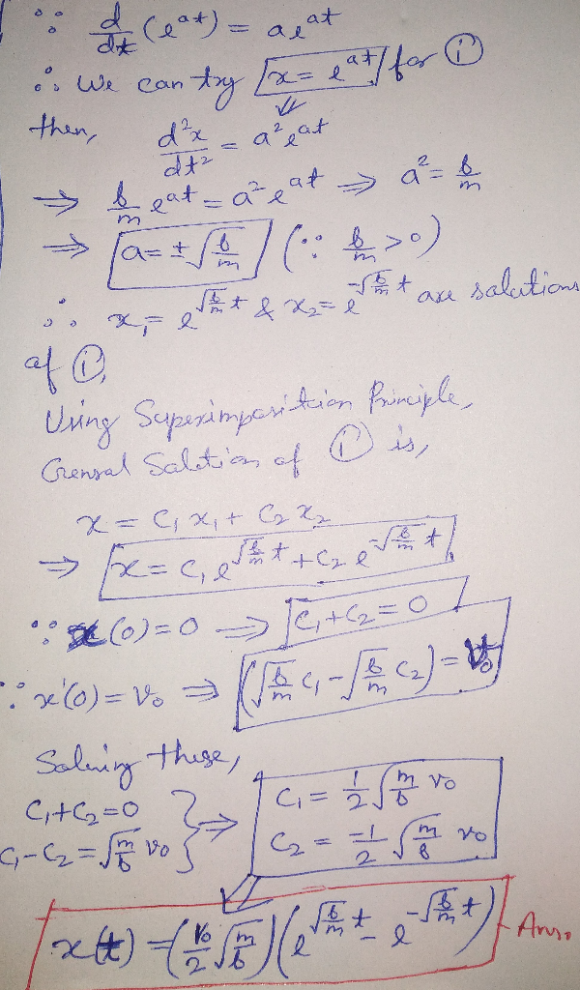 ∵ d/dt (e^{at}) = a e^{at}
∴ We can try x = e^{at} for ①
then, d²x/dt² = a² e^{at}
⇒ b/m e^{at} = a² e^{at} ⇒ a² = b/m
⇒ a = ± √(b/m) (∵ b/m > 0)
∴ x₁ = e^{√(b/m) t} & x₂ = e^{-√(b/m) t} are solutions
of ①,
Using Superimposition Principle,
General Solution of ① is,
x = C₁ x₁ + C₂ x₂
⇒ x = C₁ e^{√(b/m) t} + C₂ e^{-√(b/m) t}
∵ x(0) = 0 ⇒ C₁ + C₂ = 0
∵ x'(0) = V₀ ⇒ (√(b/m) C₁ - √(b/m) C₂) = V₀
Solving these,
C₁ + C₂ = 0
C₁ - C₂ = √(m/b) V₀ } ⇒ C₁ = 1/2 √(m/b) V₀
C₂ = -1/2 √(m/b) V₀
x(t) = (V₀/2 √(m/b)) (e^{√(b/m) t} - e^{-√(b/m) t}) Ans.